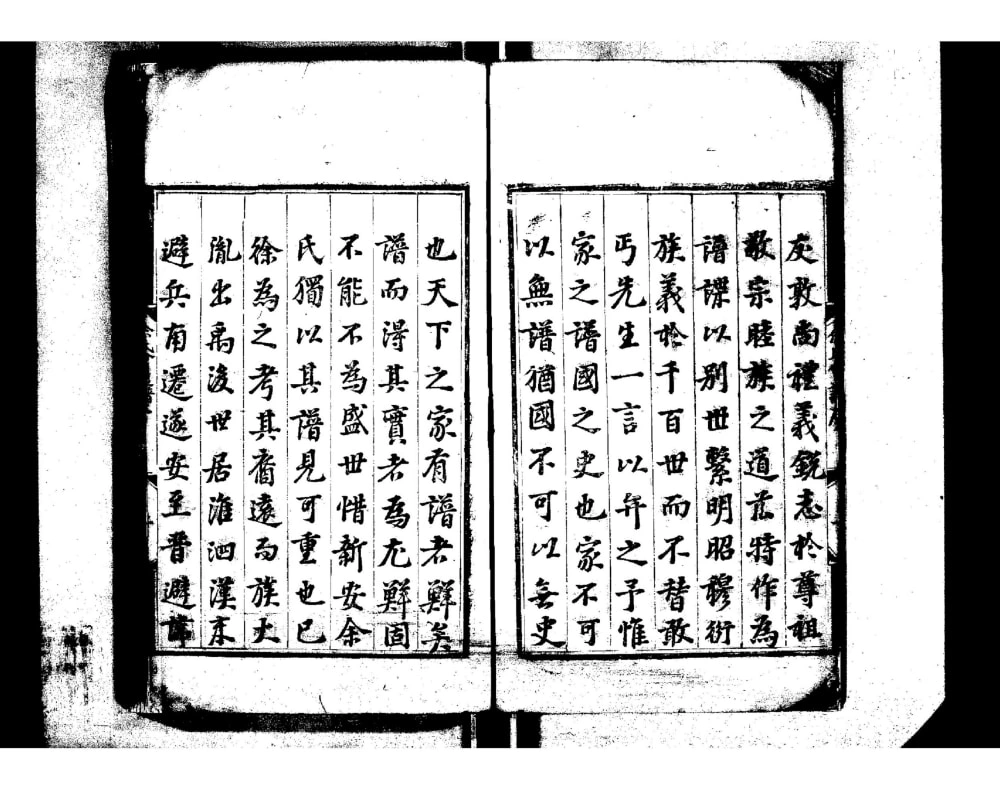 友敦尚禮義銳志於尊祖
敬宗睦族之道茲特作為
譜諜以別世繫明昭穆衍
族義於千百世而不替敢
丐先生一言以弁之予惟
家之譜國之史也家不可
以無譜猶國不可以無史
也天下之家有譜者鮮矣
譜而得其實者為尤鮮固
不能不為盛世惜新安余
氏獨以其譜見可重也已
徐為之考其裔遠而族大
胤出禹後世居淮泗漢末
避兵南遷遂安至晉避諱